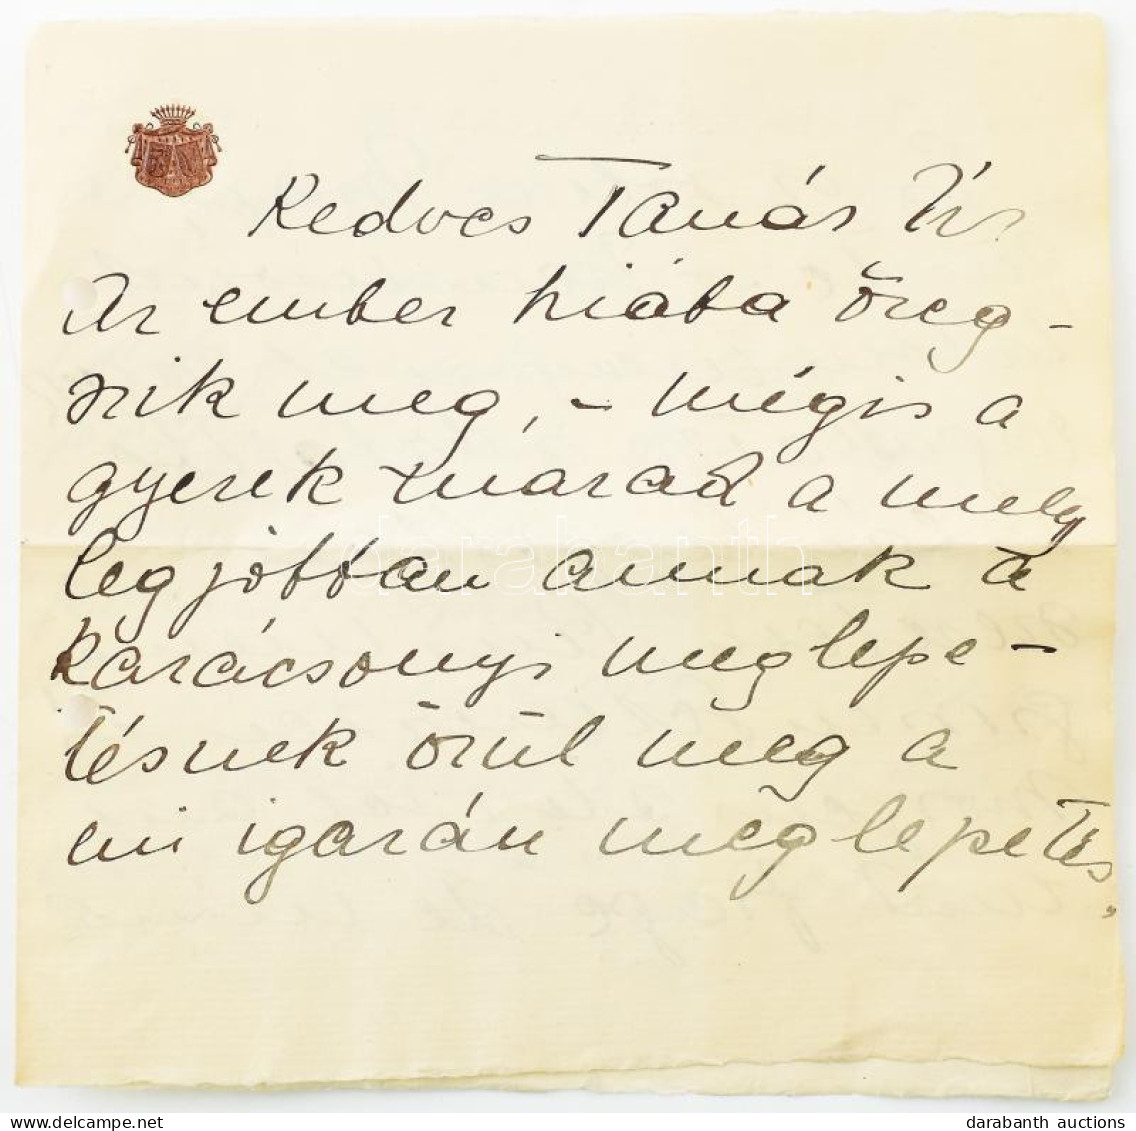 Kedves Tanár Úr
Az ember hiába öreg-
szik meg, - mégis a
gyerek marad a mely
legjobban annak a
karácsonyi meglepe-
tésnek örül meg a
mi igazán meglepetés,
darabanth
darabanth auctions